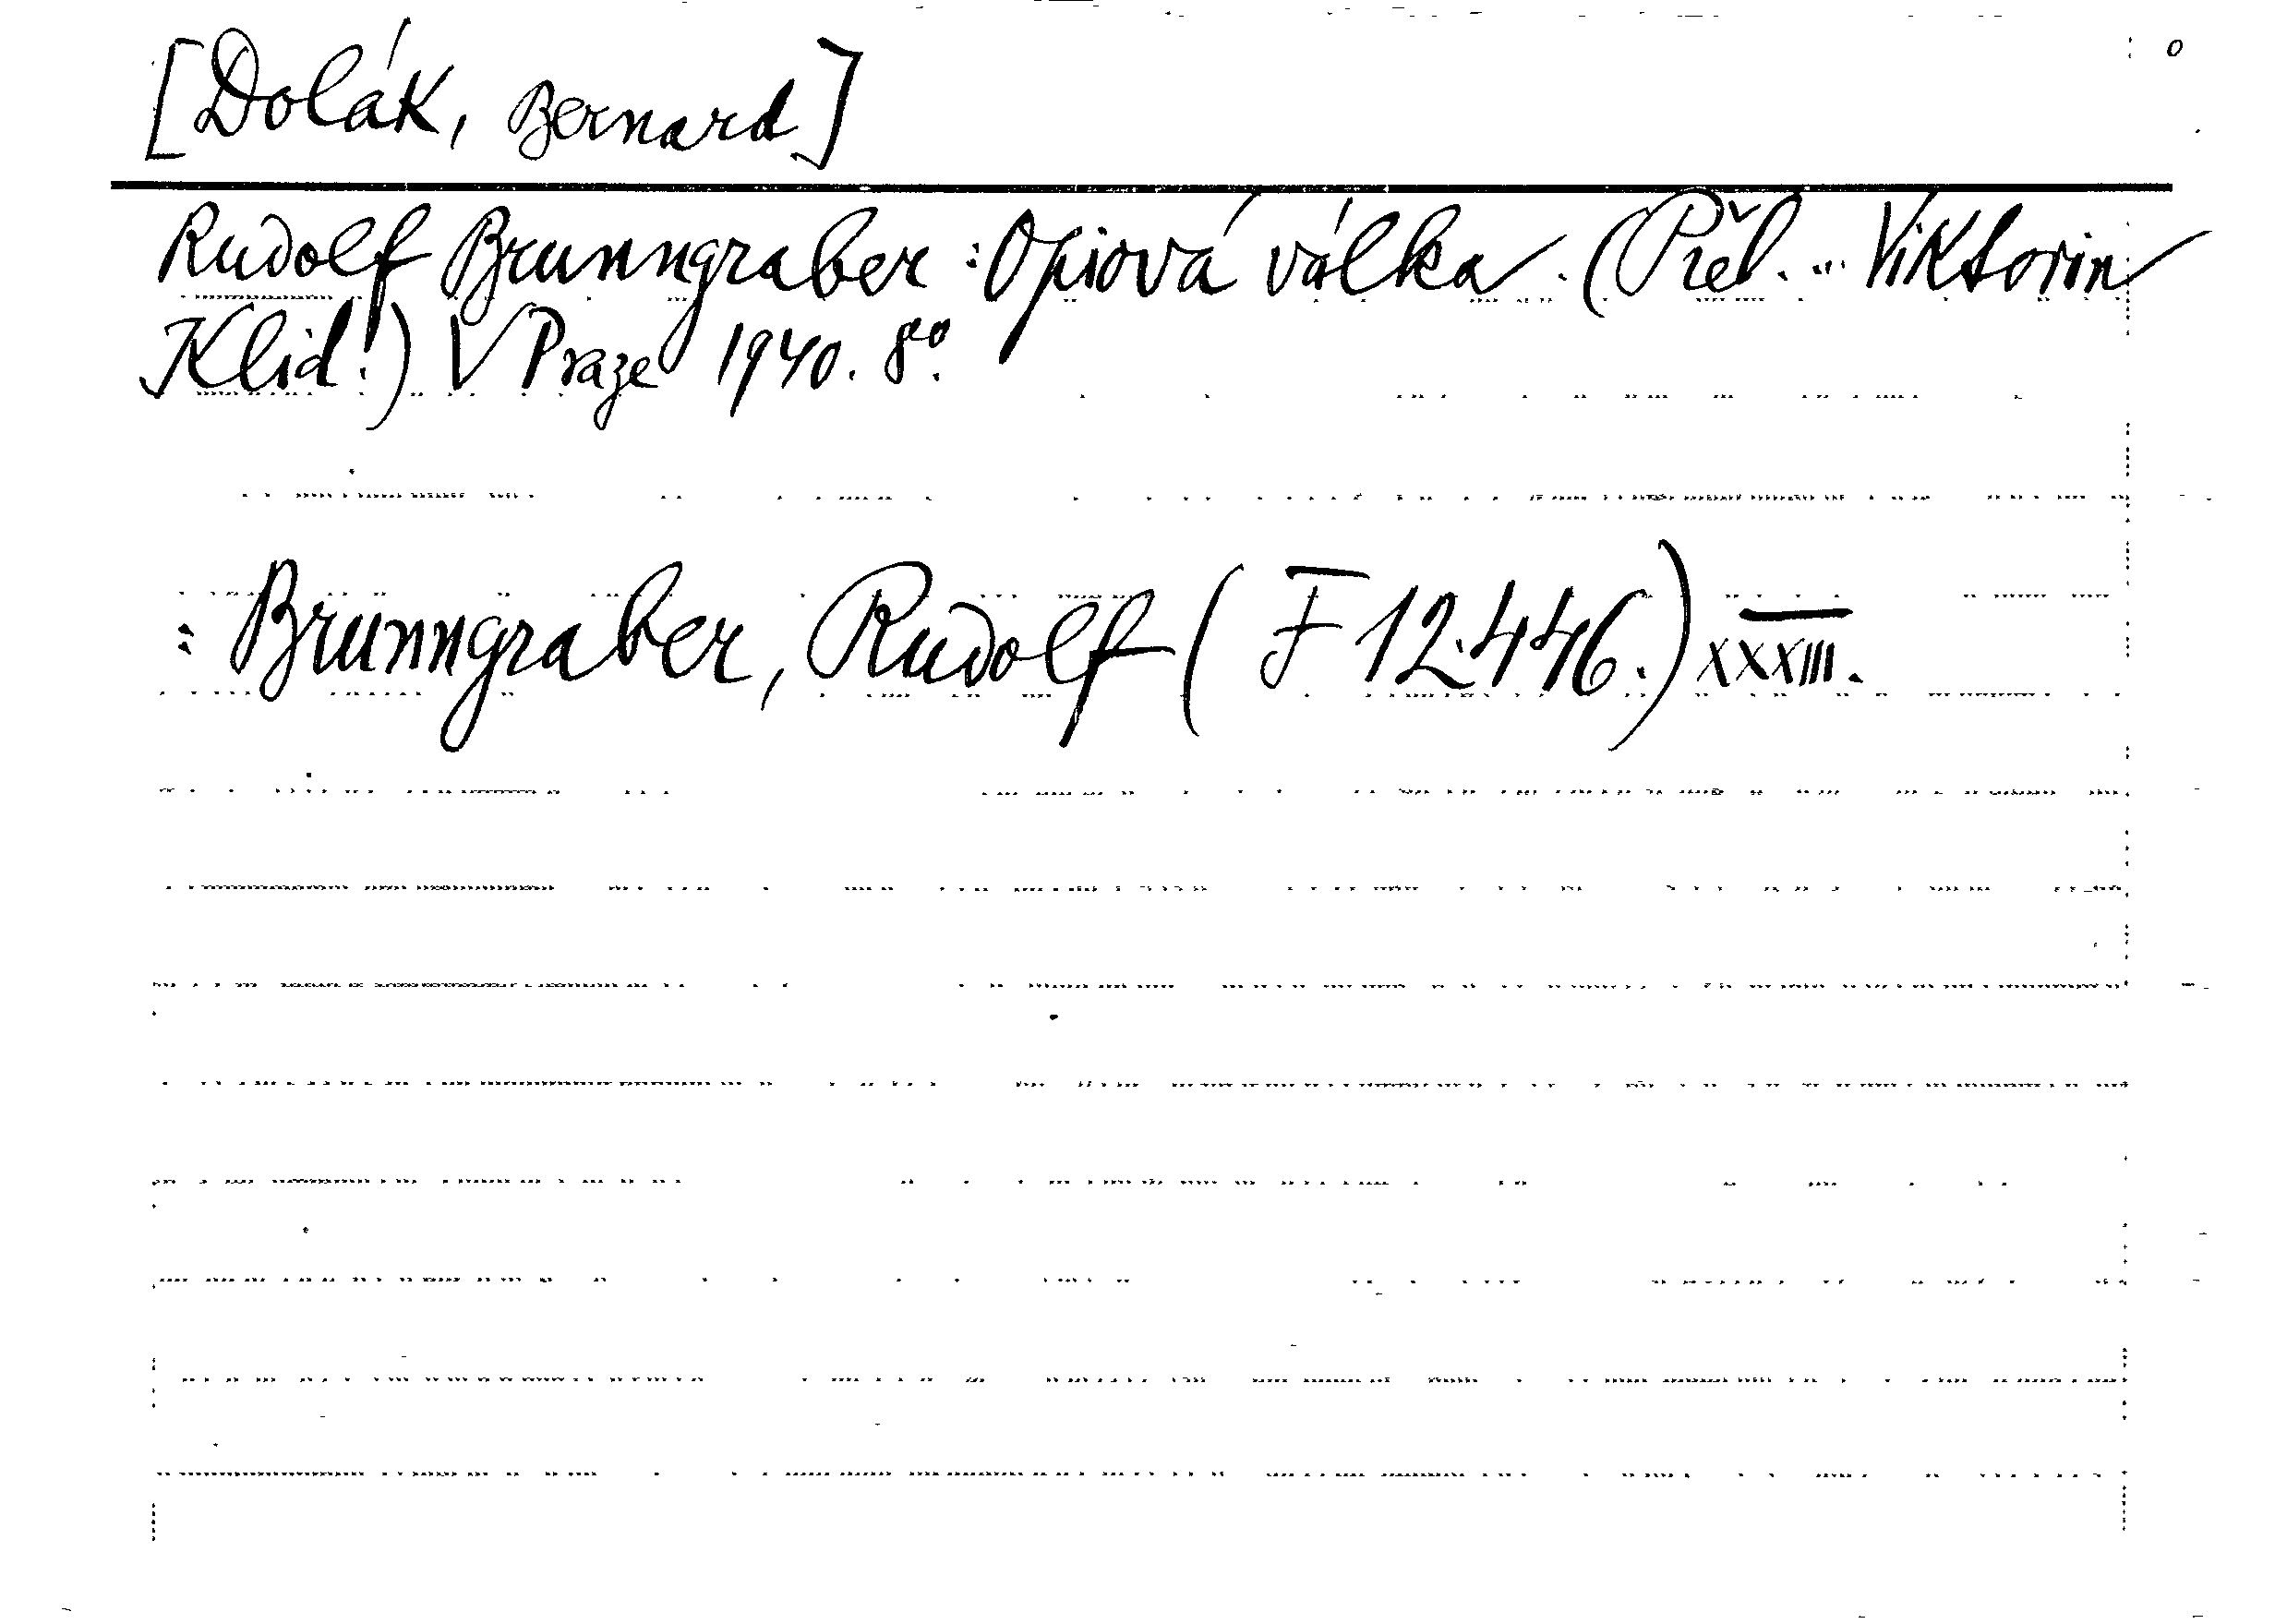 [Dolák, Bernard]
Rudolf Brunngraber: Opiová válka. (Přel. ... Viktorin
Klid!) V Praze 1940. 8o.
: Brunngraber, Rudolf (F 12.446.) XXXIII.